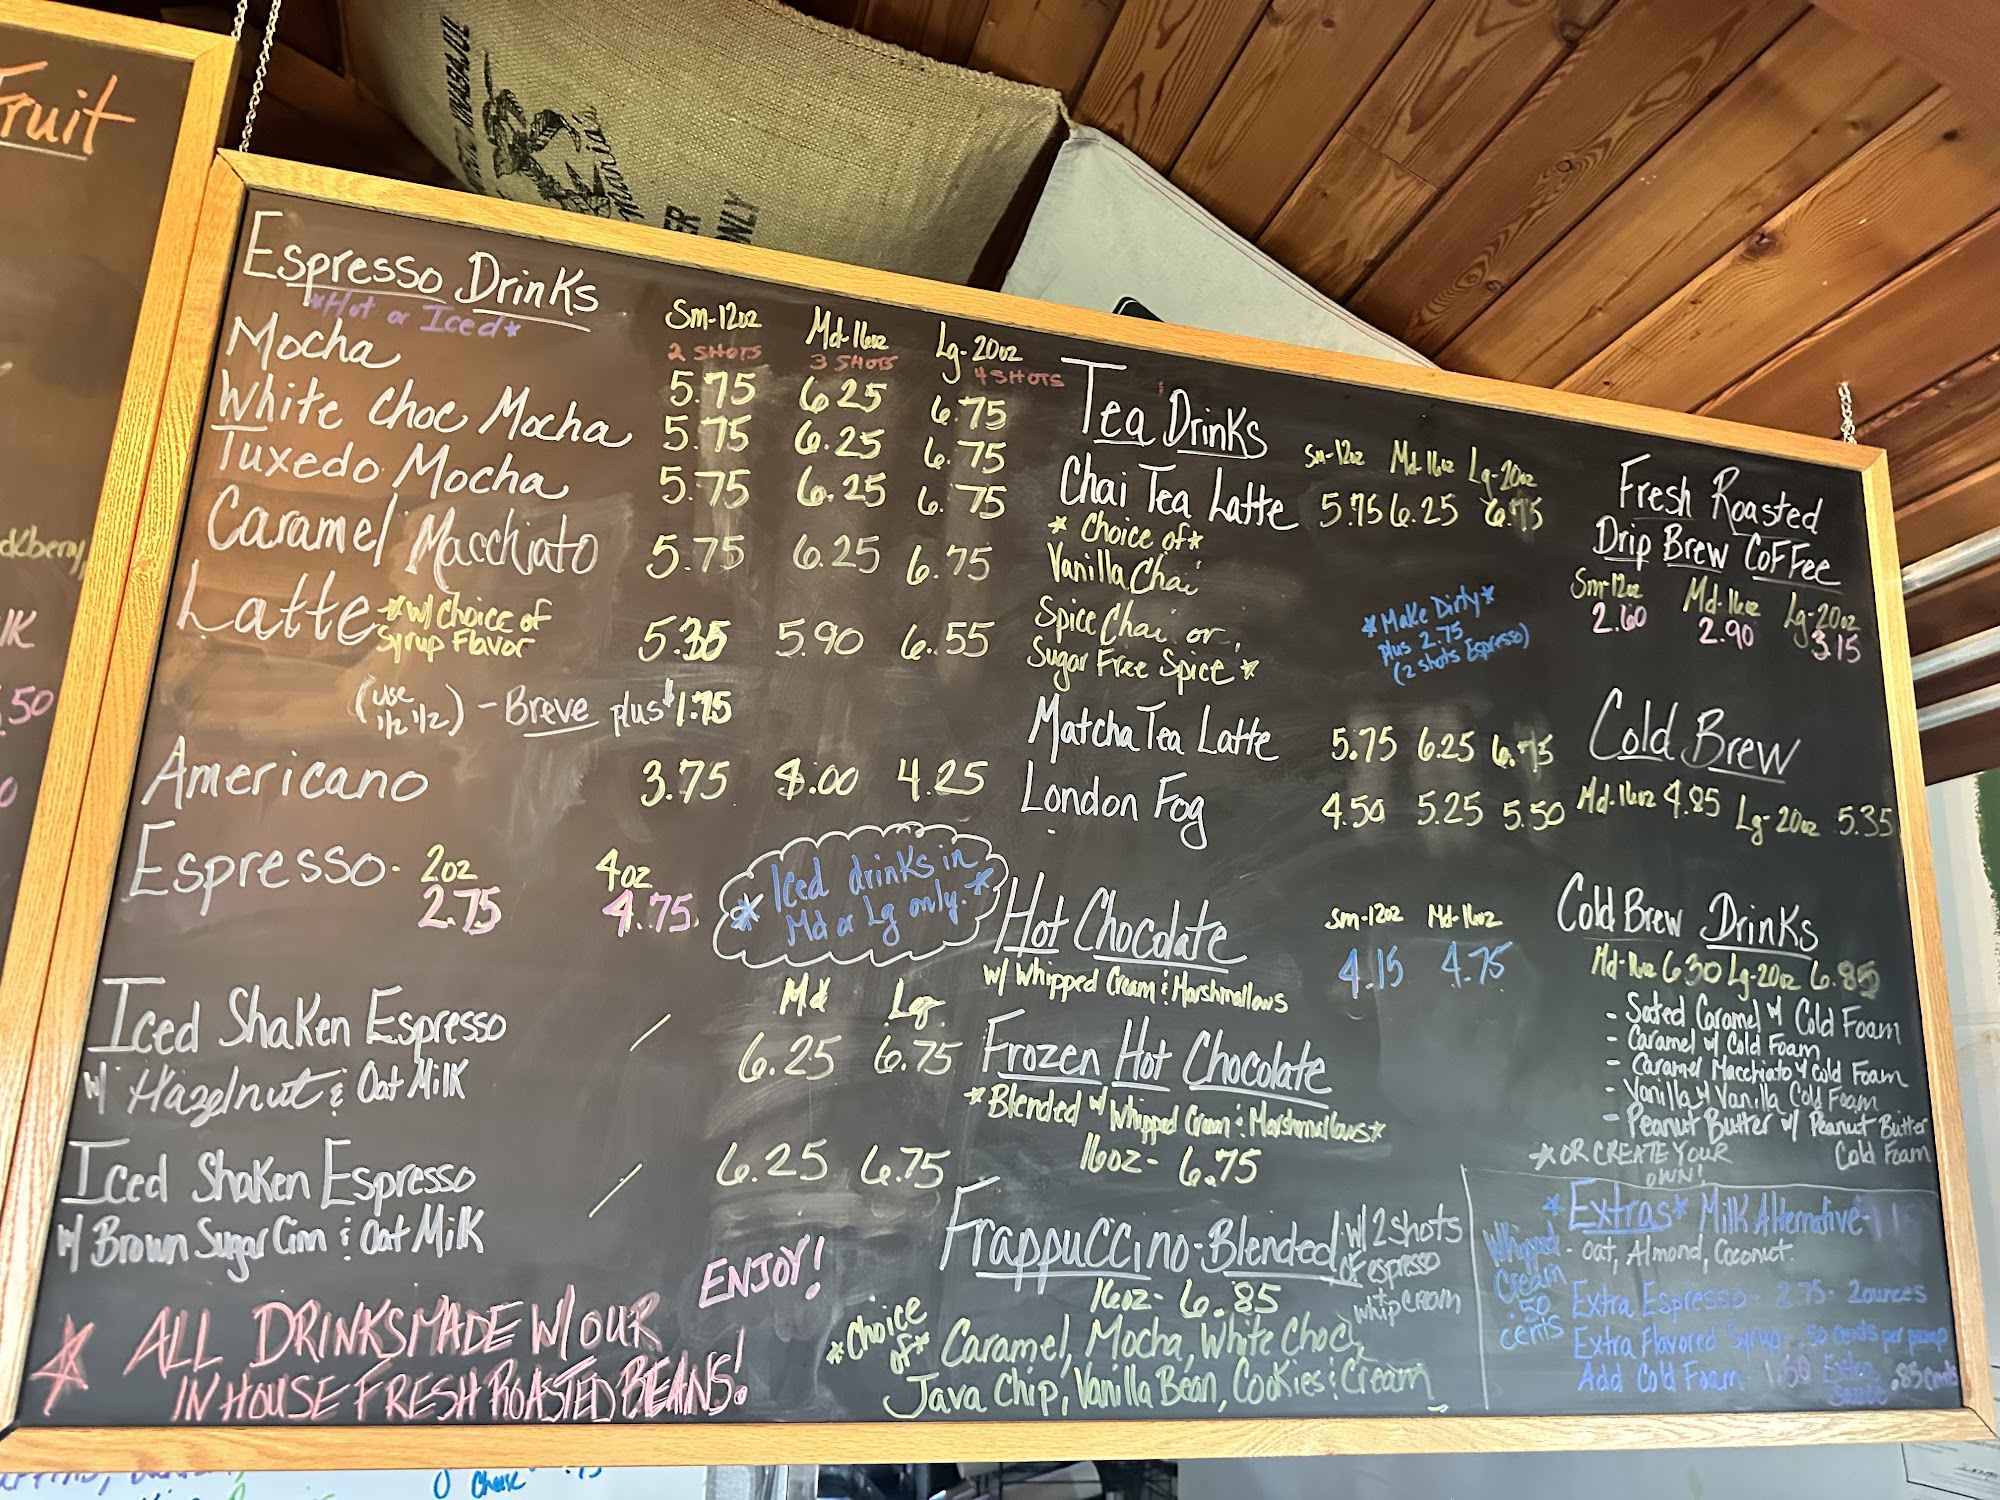 Fruit
Espresso Drinks
*Hot or Iced*
Sm-12oz Md-16oz Lg-20oz
2 SHOTS 3 SHOTS 4 SHOTS
Mocha 5.75 6.25 6.75
White Choc Mocha 5.75 6.25 6.75
Tuxedo Mocha 5.75 6.25 6.75
Caramel Macchiato 5.75 6.25 6.75
Latte *w/ Choice of
Syrup Flavor 5.35 5.90 6.55
(use
1/2 1/2) - Breve plus $1.75
Americano 3.75 4.25
Espresso - 2oz 4oz
2.75 4.75
*Iced drinks in
Md or Lg only.*
Md Lg
Iced Shaken Espresso / 6.25 6.75
w/ Hazelnut & Oat Milk
Iced Shaken Espresso / 6.25 6.75
w/ Brown Sugar Cinn & Oat Milk
ENJOY!
* ALL DRINKS MADE W/ OUR
IN HOUSE FRESH ROASTED BEANS!
Tea Drinks Sm-12oz Md-16oz Lg-20oz
Chai Tea Latte 5.75 6.25 6.75
* Choice of *
Vanilla Chai
Spice Chai or
Sugar Free Spice *
*Make Dirty*
plus 2.75
(2 shots Espresso)
Matcha Tea Latte 5.75 6.25 6.75
London Fog 4.50 5.25 5.50
Hot Chocolate Sm-12oz Md-16oz
w/ Whipped Cream & Marshmallows 4.15 4.75
Frozen Hot Chocolate
*Blended w/ Whipped Cream & Marshmallows*
16oz- 6.75
Frappuccino-Blended w/ 2 shots
of espresso
+
whip cream
16oz- 6.85
*Choice
of*
Caramel, Mocha, White Choc,
Java Chip, Vanilla Bean, Cookies & Cream
Fresh Roasted
Drip Brew Coffee
Sm-12oz Md-16oz Lg-20oz
2.60 2.90 3.15
Cold Brew
Md-16oz 4.85 Lg-20oz 5.35
Cold Brew Drinks
Md-16oz 6.30 Lg-20oz 6.85
- Salted Caramel w/ Cold Foam
- Caramel w/ Cold Foam
- Caramel Macchiato w/ Cold Foam
- Vanilla w/ Vanilla Cold Foam
- Peanut Butter w/ Peanut Butter
Cold Foam
*OR CREATE YOUR
OWN!
*Extras* Milk Alternative-
- Oat, Almond, Coconut.
Whipped
Cream
.50
cents
Extra Espresso - 2.75 - 2ounces
Extra Flavored Syrup - .50 cents per pump
Add Cold Foam - 1.50 Extra
Sauce .85 cents